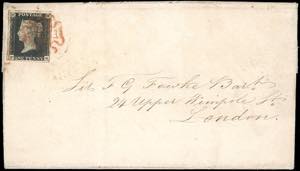 POSTAGE
ONE PENNY
Sir F G Fowke Bart
24 Upper Wimpole St
London.